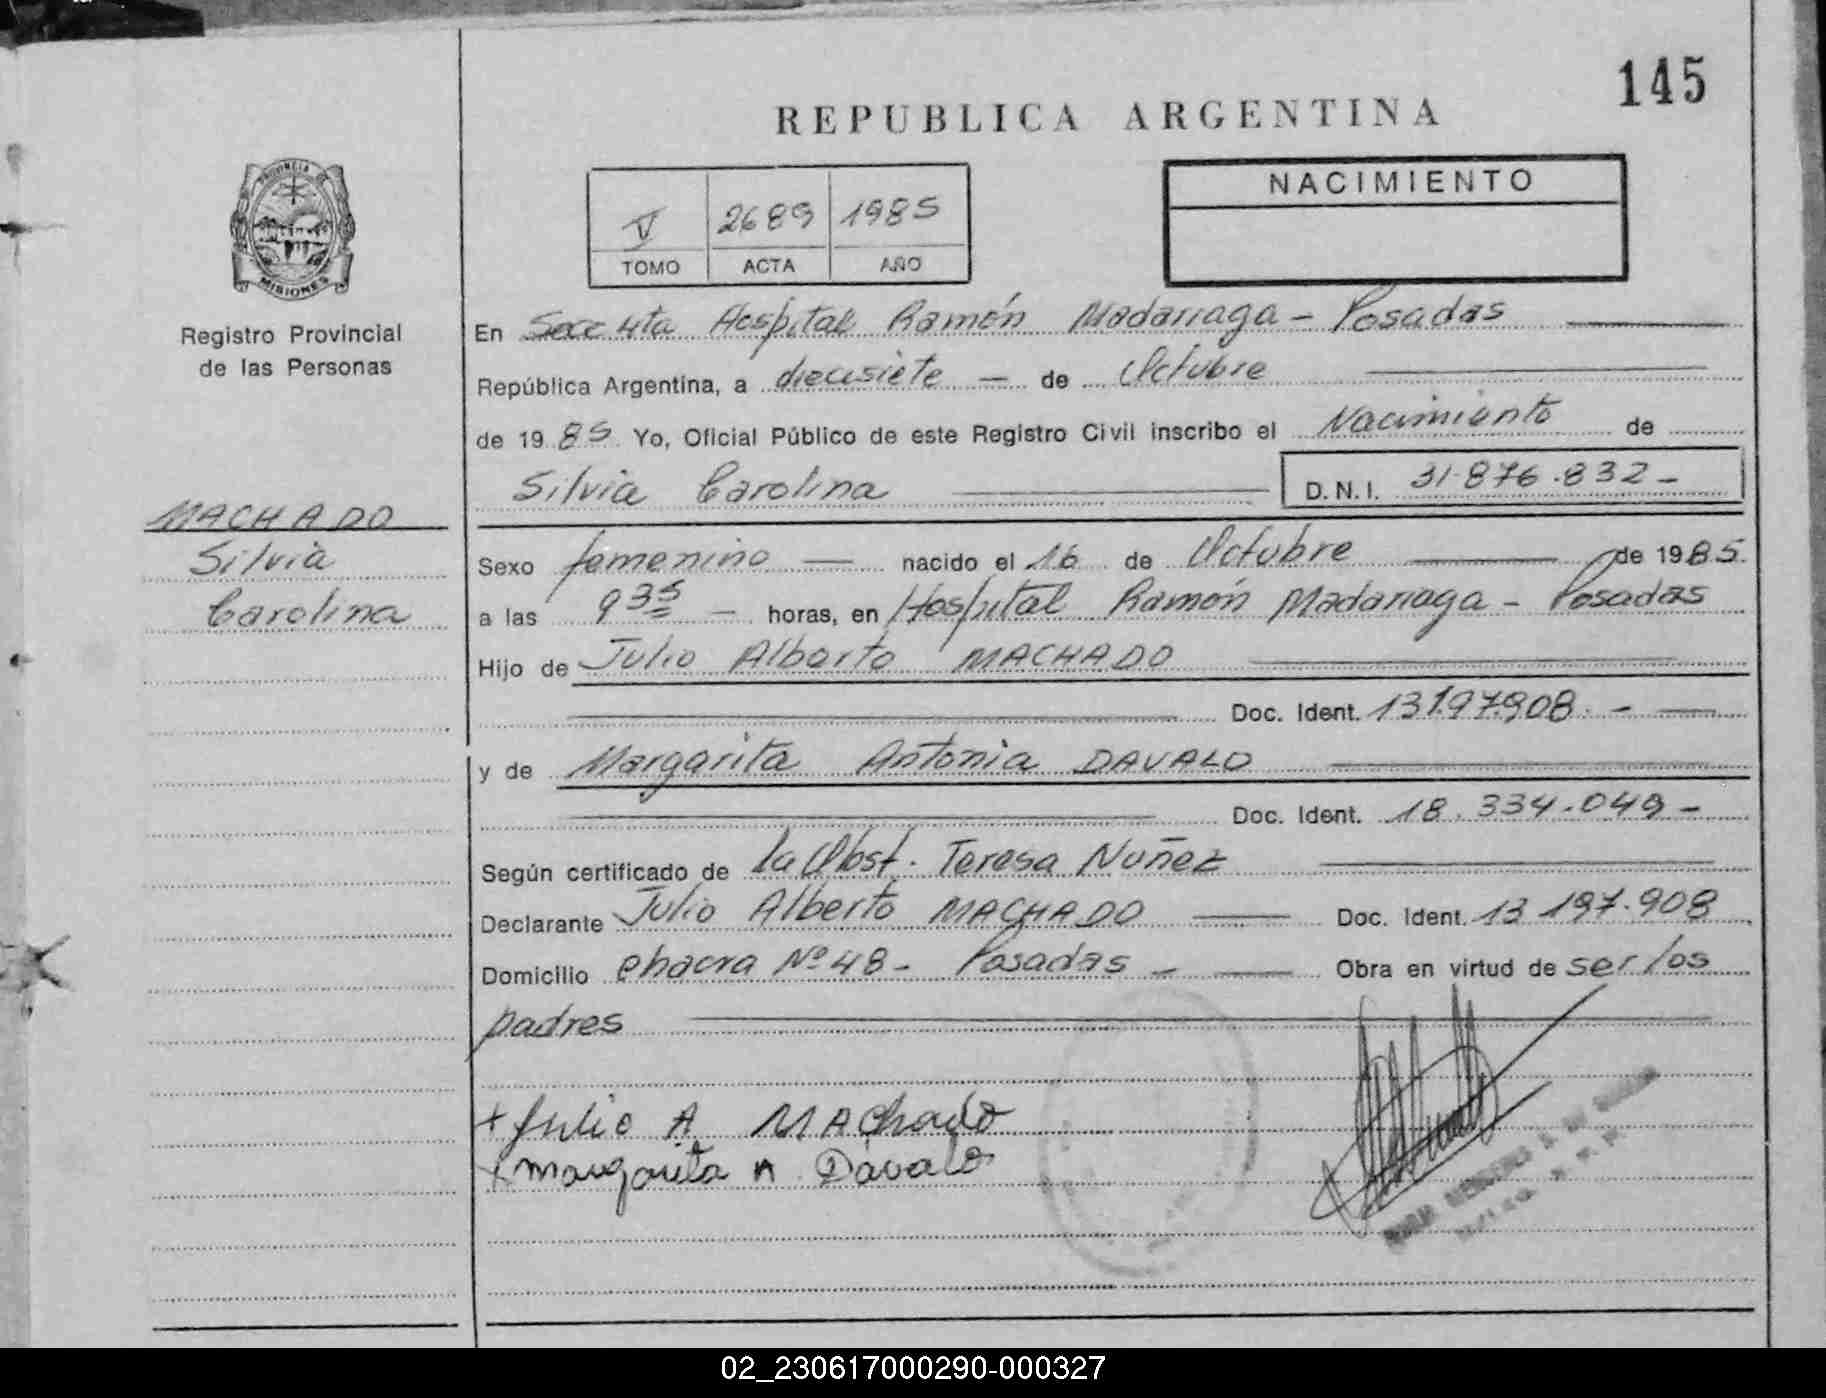 145
REPUBLICA ARGENTINA
NACIMIENTO
V 2689 1985
TOMO ACTA AÑO
PROVINCIA DE
MISIONES
Registro Provincial
de las Personas
MACHADO
Silvia
Carolina
En Secc 4ta Hospital Ramón Madariaga - Posadas
República Argentina, a diecisiete - de Octubre
de 1985 Yo, Oficial Público de este Registro Civil inscribo el Nacimiento de
Silvia Carolina D.N.I. 31.876.832-
Sexo femenino nacido el 16 de Octubre de 1985.
a las 9 35 - horas, en Hospital Ramón Madariaga - Posadas
Hijo de Julio Alberto MACHADO
Doc. Ident. 13197.908. -
y de Margarita Antonia DAVALO
Doc. Ident. 18.334.049-
Según certificado de la Obst. Teresa Nuñez
Declarante Julio Alberto MACHADO Doc. Ident. 13 197.908
Domicilio chacra Nº 48- Posadas - Obra en virtud de ser los
padres
+ Julio A MAChado
+ margarita A. Dávalo
02_230617000290-000327